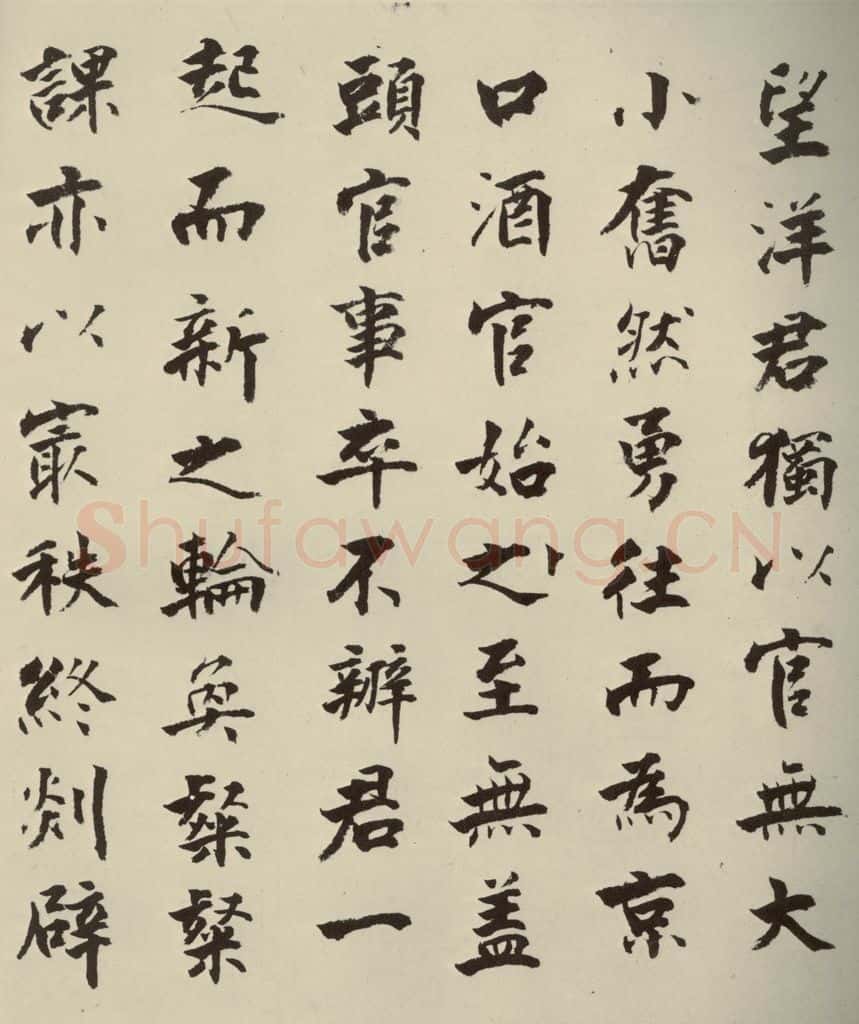 望洋君獨以官無大
小奮然勇往而為京
口酒官始之至無盖
頭官事卒不辦君一
起而新之輪奐粲粲
課亦以㝡秩終剡辟
Shufawang.CN